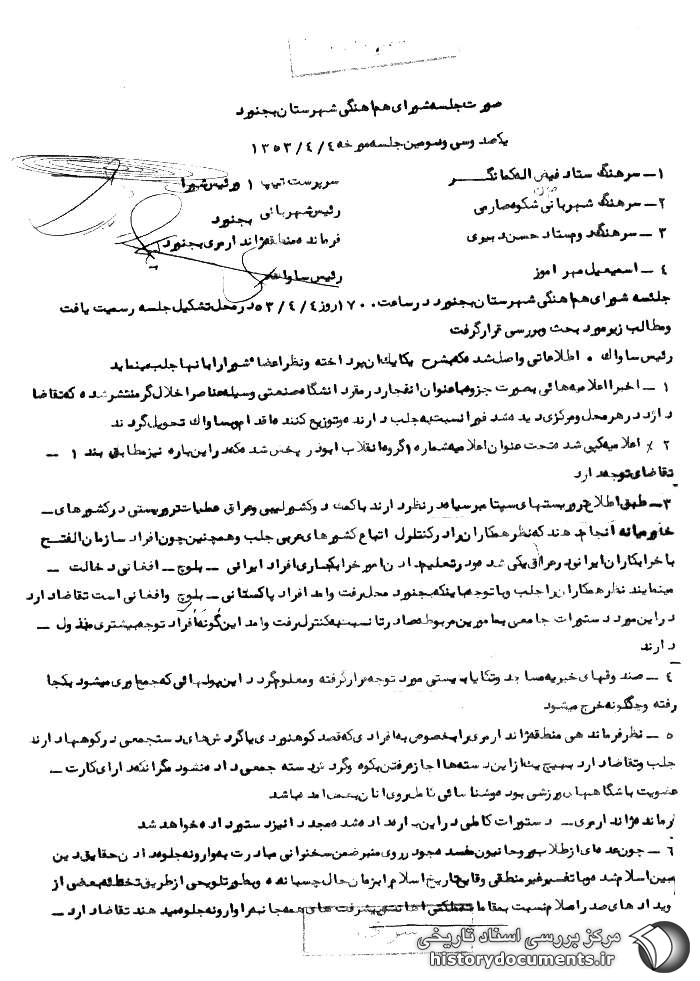 صورت جلسه شورای هماهنگی شهرستان بجنورد
یکصد وسی ودومین جلسه مورخه ۱۳۵۳/۴/۴
۱ـ سرهنگ ستاد فیض اله کمانگـــر سرپرست تیپ ۱ ورئیس شورا
۲ـ سرهنگ شهربانی شکوه صارمی رئیس شهربانی بجنورد
۳ ـ سرهنگ دوم ستاد حسن دبیری فرمانده منطقه ژاندارمری بجنورد
۴ ـ اسمعیل مهر اموز رئیس ساواک
جلسه شورای هماهنگی شهرستان بجنورد درساعت ۱۷۰۰ روز ۵۳/۴/۴ در محل تشکیل جلسه رسمیت یافت
ومطالب زیرمورد بحث وبررسی قرارگرفت
رئیس ساواک ۰ اطلاعاتی واصل شده که بشرح یکایک ان پرداخته ونظراعضا شورارابانها جلب مینماید
۱ ـ اخیرا اعلامیه هائی بصورت جزوه باعنوان انفجار درمقر دانشگاه صنعتی وسیله عناصر اخلال گرمنتشرشده که تقاضا
دارد در هرمحل ومرکزی دیده شد فورا نسبت به جلب دارنده وتوزیع کننده اقدام وبساواک تحویل گردند
۲ ـ اعلامیه کپی شده تحت عنوان اعلامیه شماره ۱ گروه انقلاب ابوذر پخش شده که در این باره نیز مطابق بند ۱ ـ
تقاضای توجه دارد
۳ـ طبق اطلاع تروریستهای سپتامبرسیاه در نظر دارند باکمک دوکشورلیبی وعراق عملیات تروریستی درکشورهای ـ
خاورمیانه انجام دهند که نظر همکاران رادرکنترل اتباع کشورهای عربی جلب وهمچنین چون افراد سازمان الفتح
با خرابکاران ایرانی درعراق یکی شده ودرتعلیم دادن امورخرابکاری افراد ایرانی ـ بلوچ ـ افغانی دخالت ـ
مینمایند نظر همکاران را جلب وباتوجه باینکه بجنورد محل رفت وامد افراد پاکستانی ـ بلوچ وافغانی است تقاضادارد
در این مورد دستورات جامعی بمامورین مربوطه صادر تا نسبت به کنترل رفت وامد این گونه افراد توجه بیشتری مبذول ـ
دارند
۴ ـ صندوقهای خیریه مساجد وتکایا بایستی مورد توجه قرارگرفته ومعلوم گردد این پولهائی که جمع اوری میشود بکجا
رفته وچگونه خرج میشود
۵ ـ نظر فرماندهی منطقه ژاندارمری را بخصوص به افرادی که قصد کوهنوردی یاگردش های دستجمعی درکوهها دارند
جلب وتقاضا دارد بهیچ یک ازاین دسته ها اجازه رفتن بکوه وگردش دسته جمعی داده نشود مگر انکه دارای کارت ـ
عضویت باشگاههای ورزشی بوده وشناسائی کامل روی انان بعمل امده باشد
فرمانده ژاندارمری ـ دستورات کاملی در این باره داده شده مجددا نیز دستور داده خواهد شد
۶ ـ چون عده ای ازطلاب وروحانیون مفسده جو در روی منبر ضمن سخنرانی مبادرت به وارونه جلوه دادن حقایق دین
مبین اسلام شده وباتفسیر غیرمنطقی وقایع تاریخ اسلام را بزمان حال چسبانده وبطور تلویحی ازطریق تخطئه بعضی از
رویدادهای صدراسلام نسبت بمقامات مملکتی اهانت وپیشرفت های همه جانبه را وارونه جلوه میدهند تقاضادارد ـ
مرکز بررسی اسناد تاریخی
historydocuments.ir